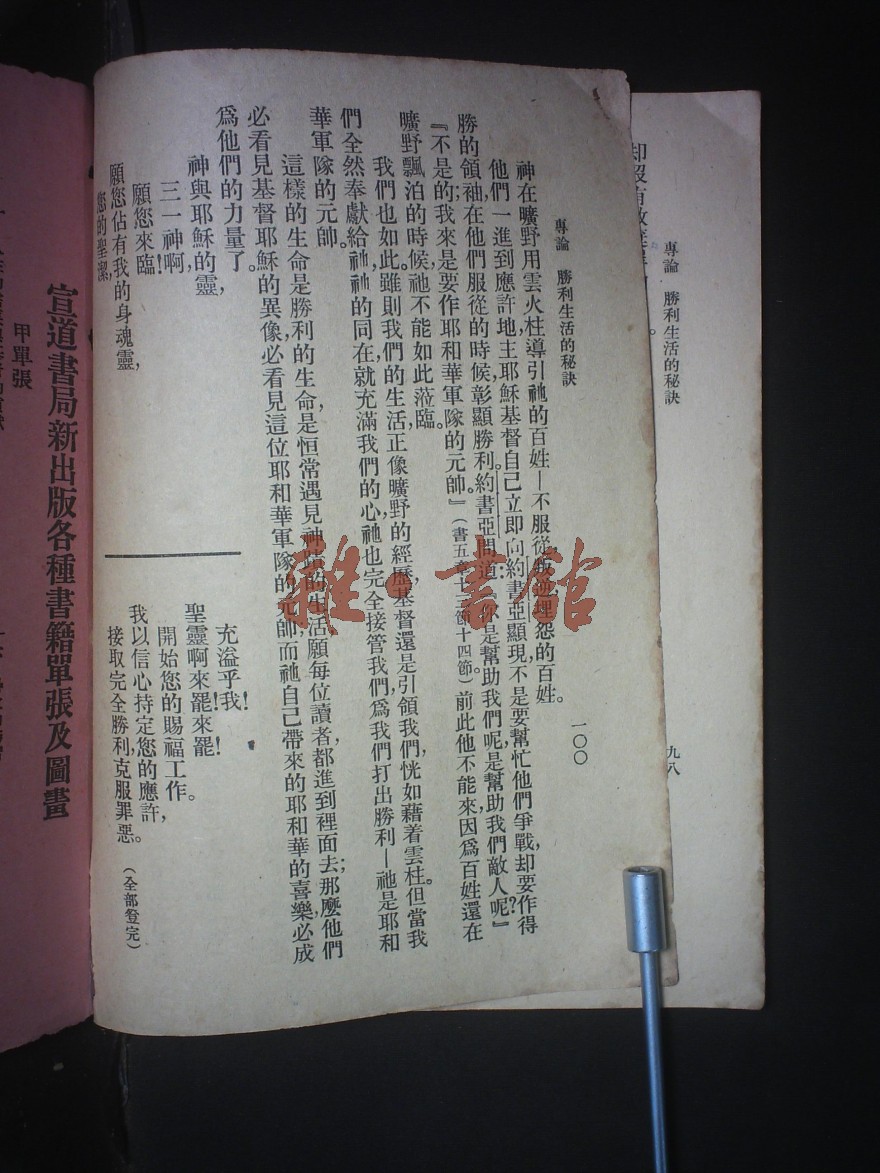 專論　勝利生活的秘訣
九八
專論　勝利生活的秘訣
一〇〇
神在曠野用雲火柱導引祂的百姓—不服從叛逆埋怨的百姓。
他們一進到應許地主耶穌基督自己立即向約書亞顯現不是要幫忙他們爭戰却要作得
勝的領袖,在他們服從的時候彰顯勝利約書亞問道:『你是幫助我們呢是幫助我們敵人呢?』
『不是的;我來是要作耶和華軍隊的元帥。』(書五章十三節十四節)。前此他不能來,因爲百姓還在
曠野飄泊的時候,祂不能如此蒞臨。
我們也如此雖則我們的生活正像曠野的經歷基督還是引領我們,恍如藉着雲柱。但當我
們全然奉獻給祂祂的同在就充滿我們的心祂也完全接管我們,爲我們打出勝利—祂是耶和
華軍隊的元帥。
這樣的生命是勝利的生命,是恒常遇見神蹟的生活願每位讀者都進到裡面去;那麼他們
必看見基督耶穌的異像,必看見這位耶和華軍隊的元帥,而祂自己帶來的耶和華的喜樂必成
爲他們的力量了。
神與耶穌的靈,
三一神啊!
願您來臨
願您佔有我的身魂靈,
您的聖潔,
充溢乎我!
聖靈啊!來罷!來罷!
開始您的賜福工作。
我以信心持定您的應許,
接取完全勝利,克服罪惡。
(全部登完)
宣道書局新出版各種書籍單張及圖畫
甲單張
雜·書館